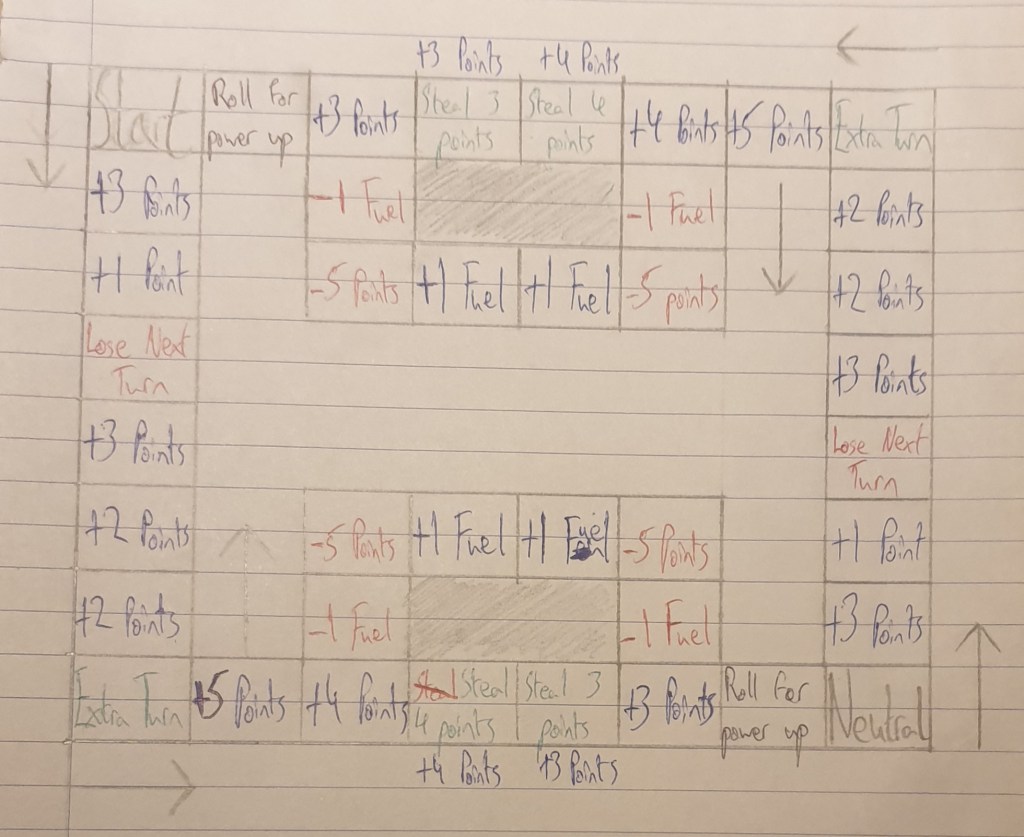 +3 Points +4 Points
Start
Roll for
power up
+3 Points
Steal 3
points
Steal 4
points
+4 Points
+5 Points
Extra Turn
+3 Points
-1 Fuel
-1 Fuel
+2 Points
+1 Point
-5 Points
+1 Fuel
+1 Fuel
-5 points
+2 Points
Lose Next
Turn
+3 Points
+3 Points
Lose Next
Turn
+2 Points
-5 Points
+1 Fuel
+1 Fuel
-5 Points
+1 Point
+2 Points
-1 Fuel
-1 Fuel
+3 Points
Extra Turn
+5 Points
+4 Points
Steal Steal
4 points
Steal 3
points
+3 Points
Roll for
power up
Neutral
+4 Points +3 Points